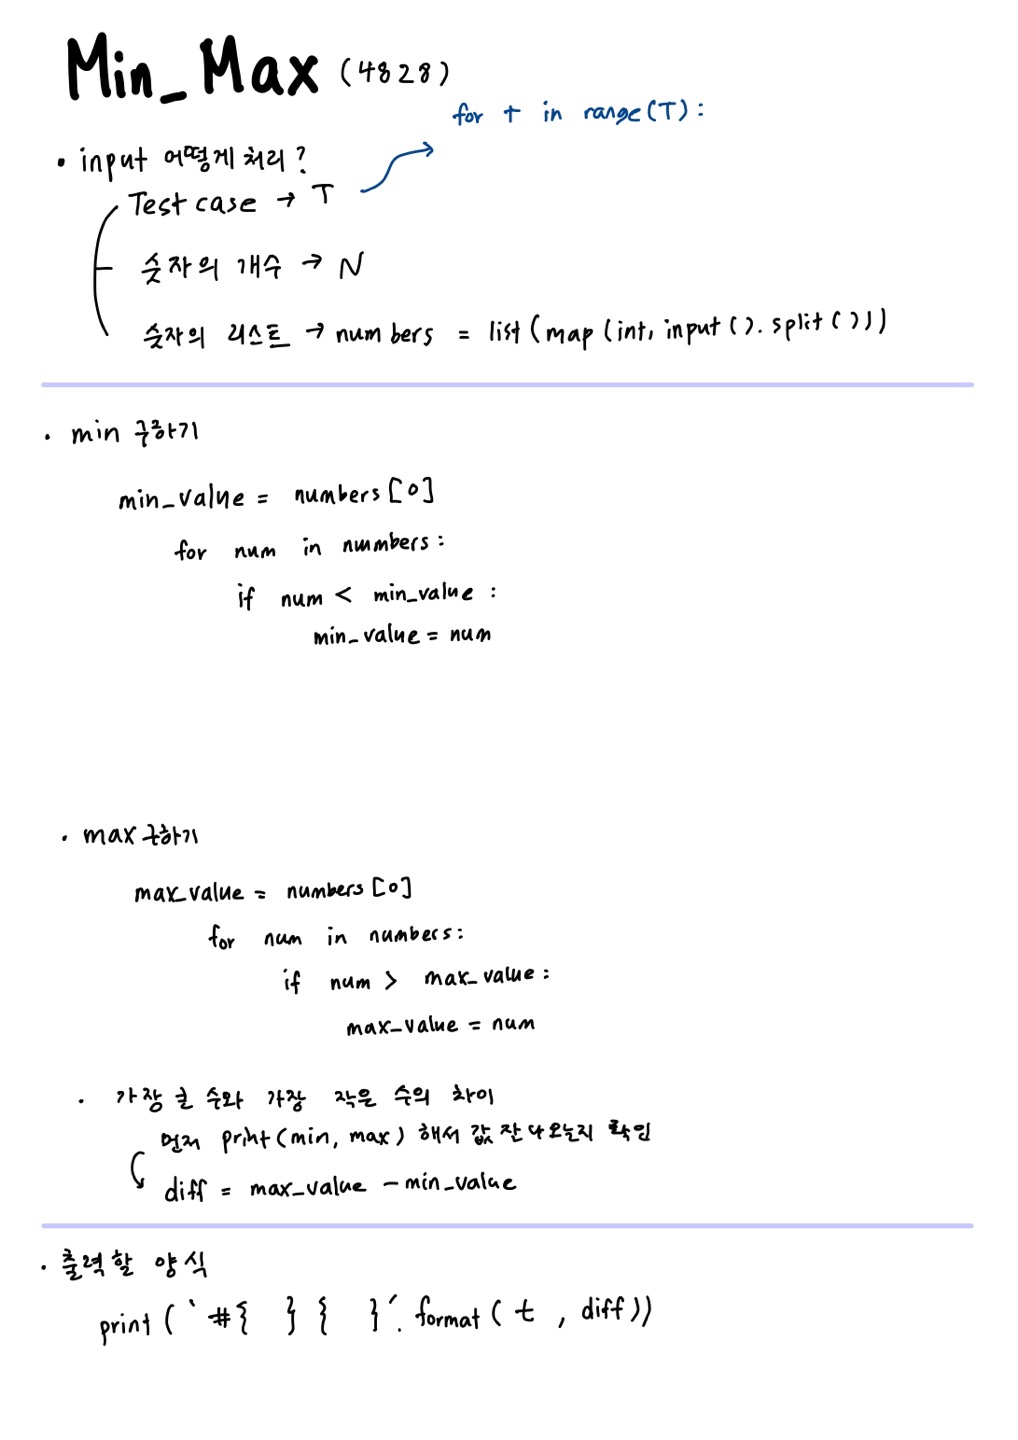 Min_Max (4828)
for t in range(T):
• input 어떻게 처리?
Test case → T
숫자의 개수 → N
숫자의 리스트 → numbers = list(map(int, input().split()))
• min 구하기
min_value = numbers[0]
for num in numbers:
if num < min_value :
min_value = num
• max 구하기
max_value = numbers[0]
for num in numbers:
if num > max_value:
max_value = num
• 가장 큰 수와 가장 작은 수의 차이
먼저 print(min, max) 해서 값 잘 나오는지 확인
diff = max_value - min_value
• 출력할 양식
print('#{ } { }'.format(t, diff))